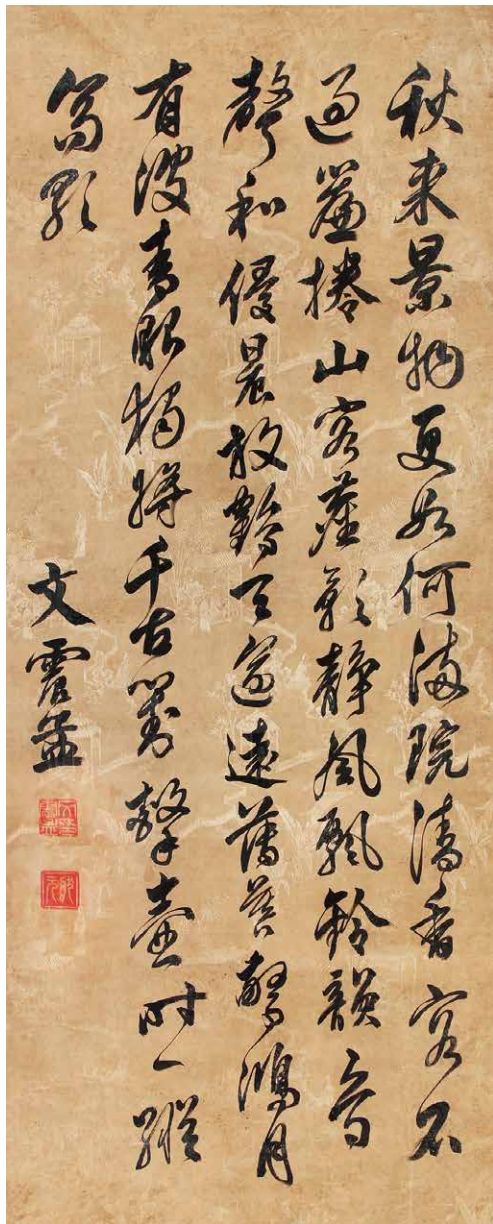 秋来景物更如何滿院清香客不
過簾捲山容影靜風飄鈴韻音
聲和侵晨放鶴天遠薄莫驚鴻月
有波青眼獨將千古對擊壺時一縱
高歌
文震孟